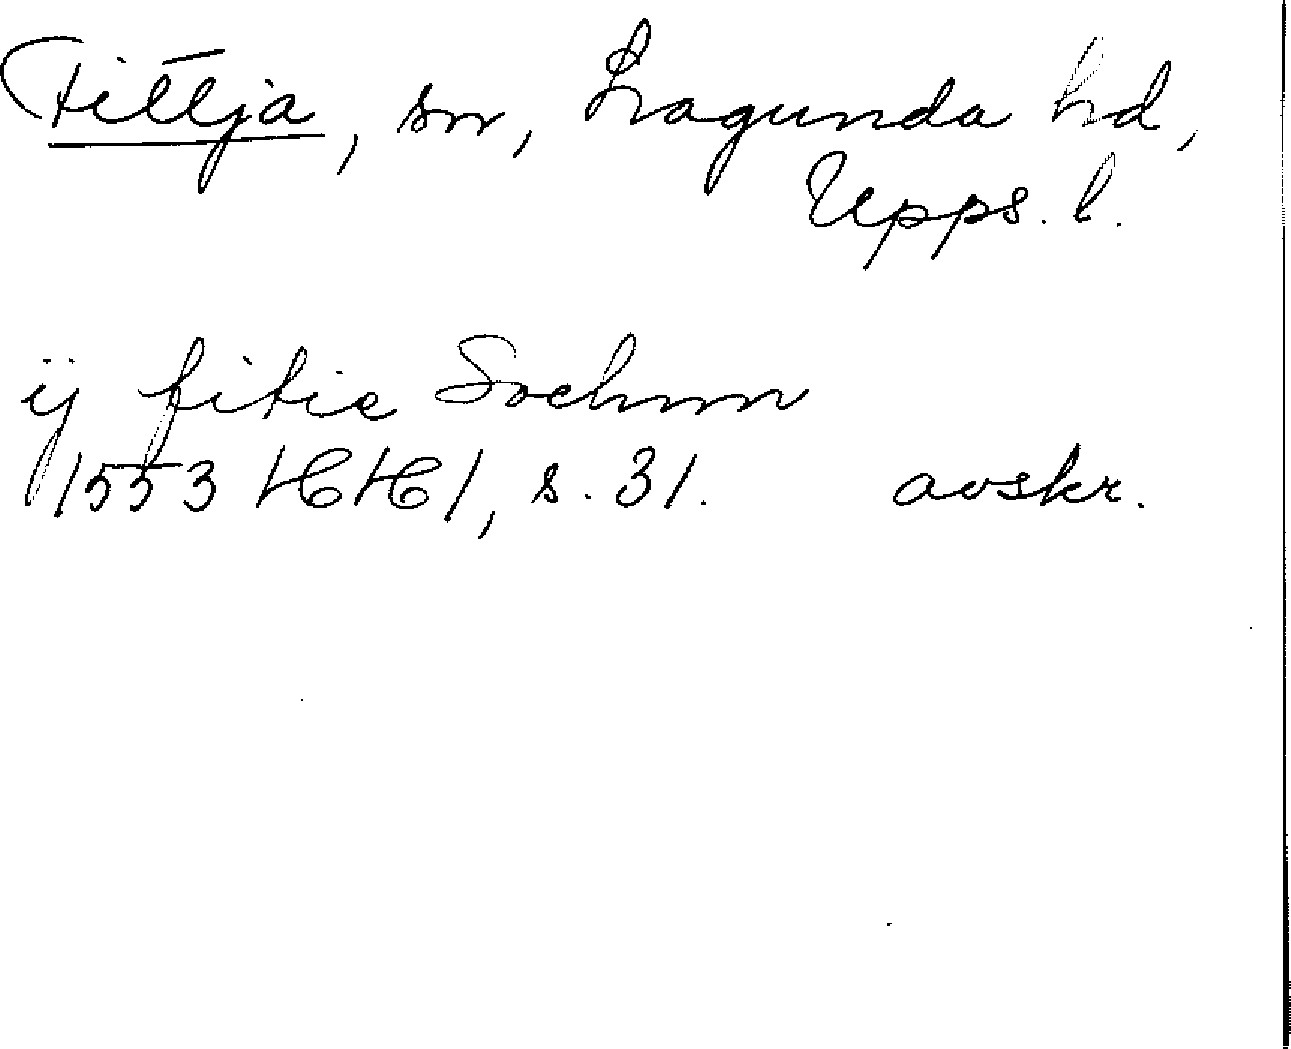 Fittja, sn, Lagunda hd,
Upps. l.
ij fitie Sochnn
1553 HH 1, s. 31. avskr.